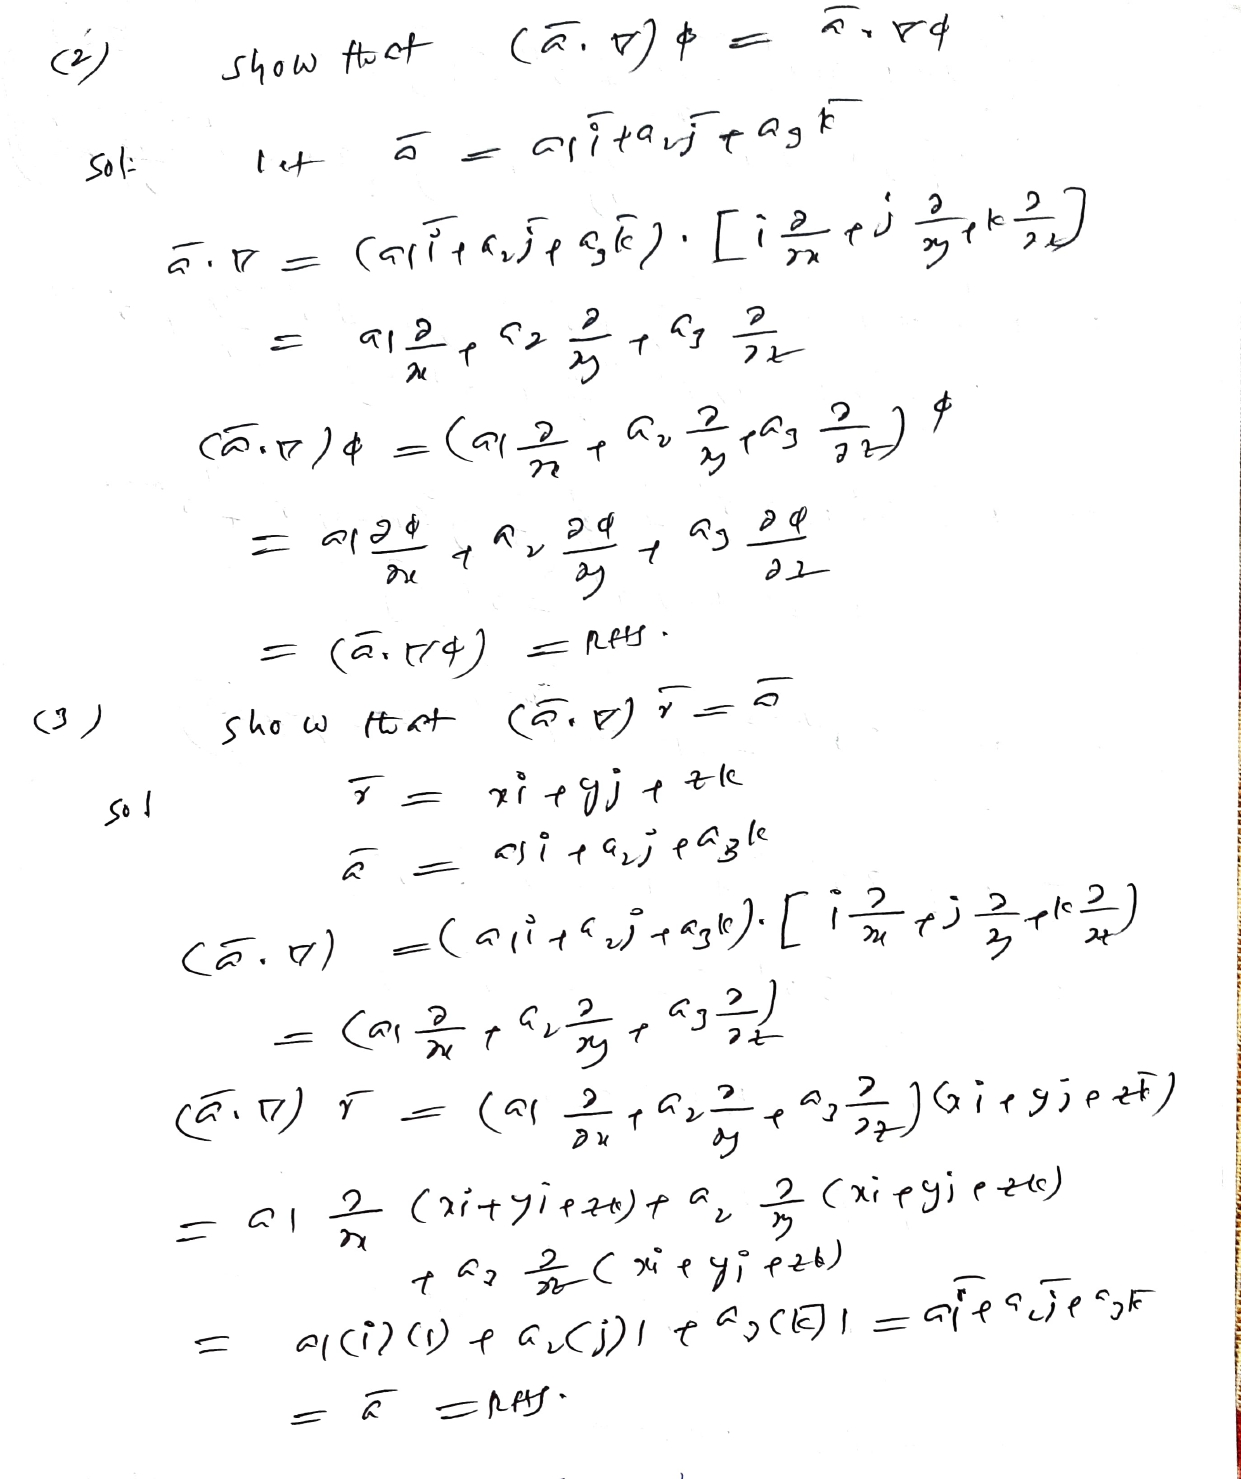 (2) show that (ā . ∇) φ = ā . ∇φ
Sol:- let ā = a₁ī + a₂j̄ + a₃k̄
ā . ∇ = (a₁ī + a₂j̄ + a₃k̄) . [i ∂/∂x + j ∂/∂y + k ∂/∂z]
= a₁ ∂/∂x + a₂ ∂/∂y + a₃ ∂/∂z
(ā . ∇) φ = (a₁ ∂/∂x + a₂ ∂/∂y + a₃ ∂/∂z) φ
= a₁ ∂φ/∂x + a₂ ∂φ/∂y + a₃ ∂φ/∂z
= (ā . ∇φ) = RHS .
(3) show that (ā . ∇) r̄ = ā
Sol r̄ = xi + yj + zk
ā = a₁i + a₂j + a₃k
(ā . ∇) = (a₁i + a₂j + a₃k) . [i ∂/∂x + j ∂/∂y + k ∂/∂z)
= (a₁ ∂/∂x + a₂ ∂/∂y + a₃ ∂/∂z)
(ā . ∇) r̄ = (a₁ ∂/∂x + a₂ ∂/∂y + a₃ ∂/∂z) (xi + yj + zk̄)
= a₁ ∂/∂x (xi + yj + zk) + a₂ ∂/∂y (xi + yj + zk)
+ a₃ ∂/∂z (xi + yj + zk)
= a₁(i)(1) + a₂(j)1 + a₃(k̄)1 = a₁ī + a₂j̄ + a₃k̄
= ā = RHS .